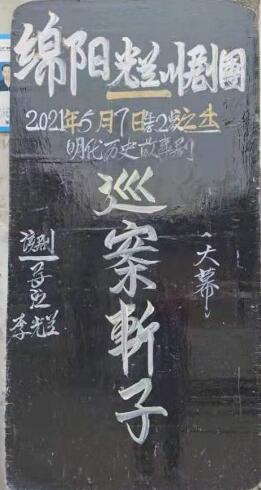 绵阳光兰川剧團
2021年5月7日書2岁之生
明代历史故事剧
巡案斬子
大幕
该剧
导演
李光兰